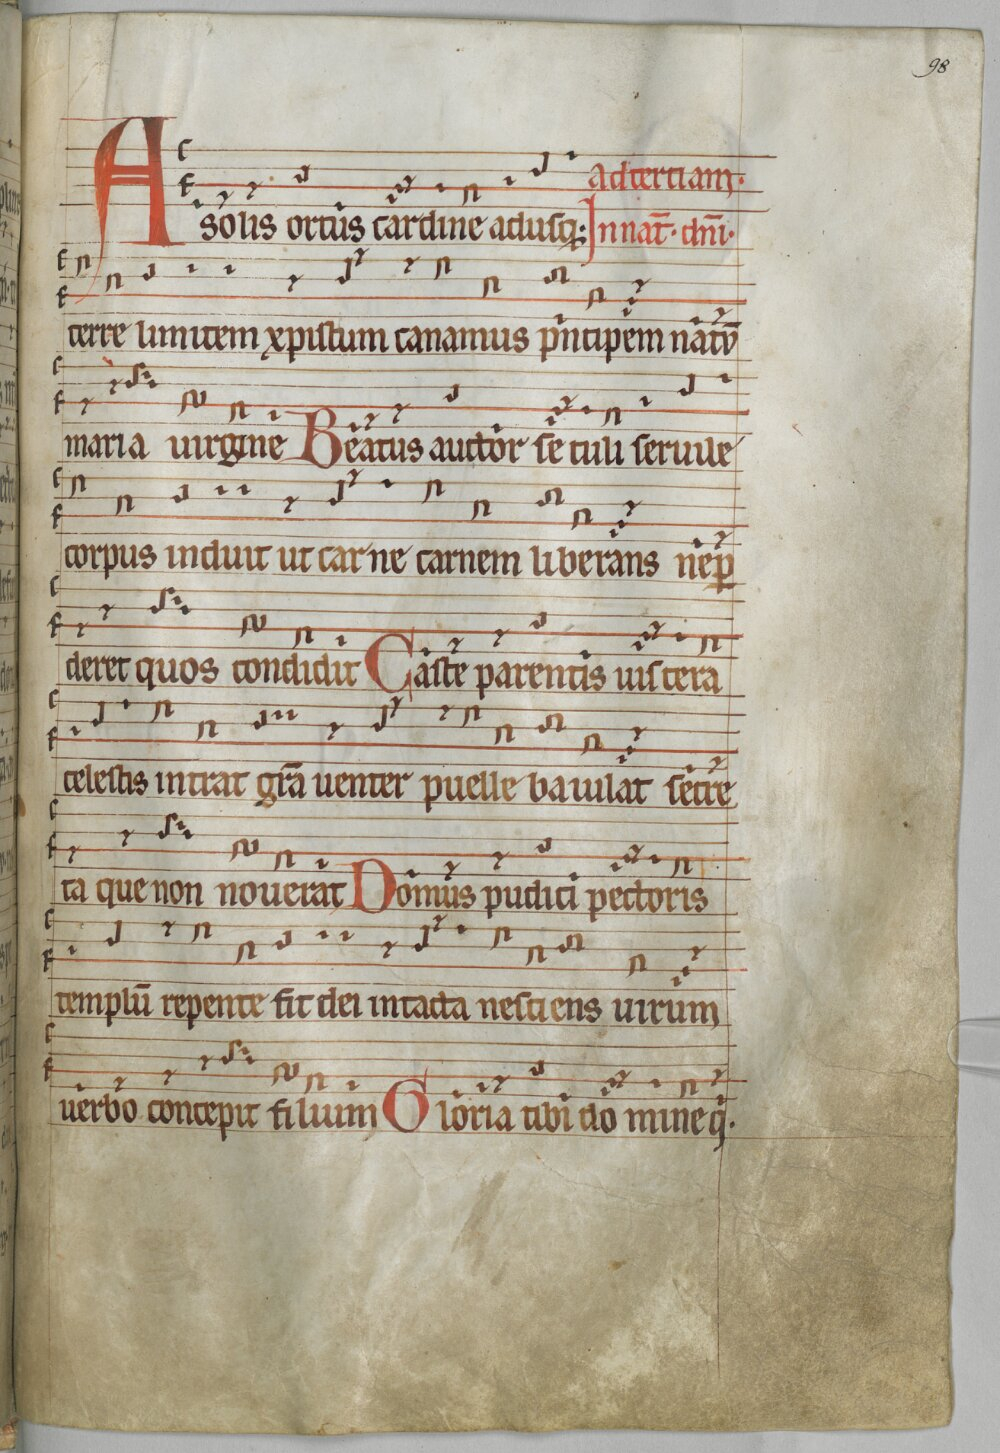 98
Ad tertiam.
A solis ortus cardine adusq;
In nat̄. dn̄i.
terre limitem xpistum canamus pⁱncipem natū
maria uirgine Beatus auctor seculi seruile
corpus induit ut carne carnem liberans ne ꝑ
deret quos condidit Caste parentis uiscera
celestis intrat gr̄a uenter puelle baiulat secre
ta que non nouerat Domus pudici pectoris
templū repente fit dei intacta nesciens uirum
uerbo concepit filium Gloria tibi domine q̄.